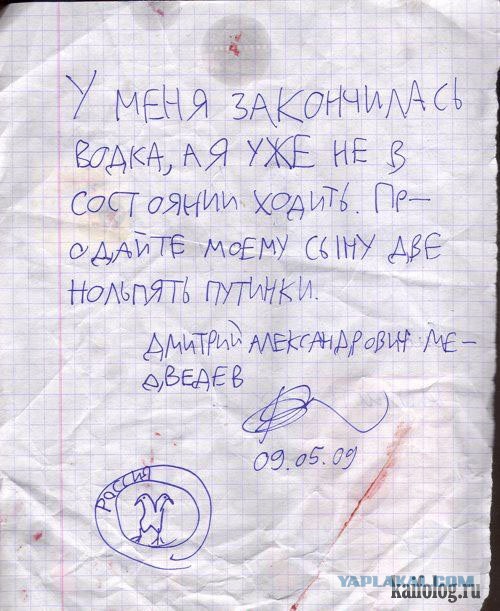 У МЕНЯ ЗАКОНЧИЛАСЬ
ВОДКА, А Я УЖЕ НЕ В
СОСТОЯНИИ ХОДИТЬ. ПР-
ОДАЙТЕ МОЕМУ СЫНУ ДВЕ
НОЛЬПЯТЬ ПУТИНКИ.
ДМИТРИЙ АЛЕКСАНДРОВИЧ МЕ-
ДВЕДЕВ
09.05.09
РОССИЯ
YAPLAKAL.COM
kaifolog.ru